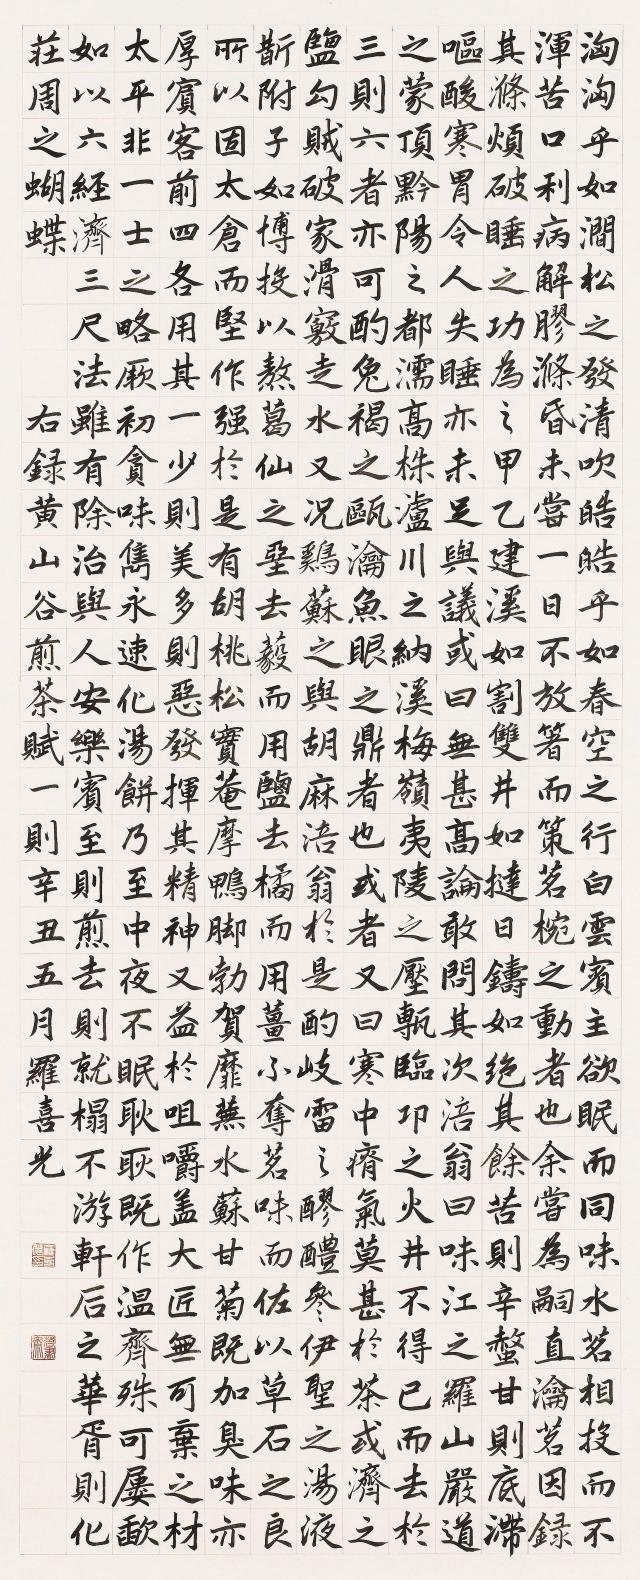 洶洶乎如澗松之發清吹皓皓乎如春空之行白雲賓主欲眠而同味水茗相投而不
渾苦口利病解膠滌昏未嘗一日不放箸而策茗椀之動者也余嘗為嗣直瀹茗因錄
其滌煩破睡之功為之甲乙建溪如割雙井如撻日鑄如絕其餘苦則辛螫甘則底滯
嘔酸寒胃令人失睡亦未足與議或曰無甚高論敢問其次涪翁曰味江之羅山嚴道
之蒙頂黔陽之都濡高株瀘川之納溪梅嶺夷陵之壓甎臨邛之火井不得已而去於
三則六者亦可酌兔褐之甌瀹魚眼之鼎者也或者又曰寒中瘠氣莫甚於茶或濟之
鹽勾賊破家滑竅走水又况鷄蘇之與胡麻涪翁於是酌岐雷之醪醴參伊聖之湯液
斮附子如博投以熬葛仙之堊去藙而用鹽去橘而用薑不奪茗味而佐以草石之良
所以固太倉而堅作强於是有胡桃松實菴摩鴨脚勃賀靡蕪水蘇甘菊既加臭味亦
厚賓客前四各用其一少則美多則惡發揮其精神又益於咀嚼盖大匠無可棄之材
太平非一士之略厥初貪味雋永速化湯餅乃至中夜不眠耿耿既作温齊殊可屢歃
如以六經濟三尺法雖有除治與人安樂賓至則煎去則就榻不游軒后之華胥則化
莊周之蝴蝶
右錄黄山谷煎茶賦一則辛丑五月羅喜光